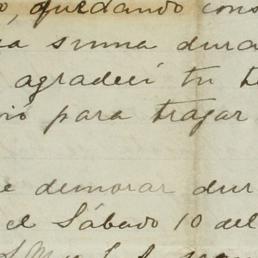 o, quedando cons
ma suma dura
agradecí tu te
ió para tragar
e demorar dur
el Sábado 10 del